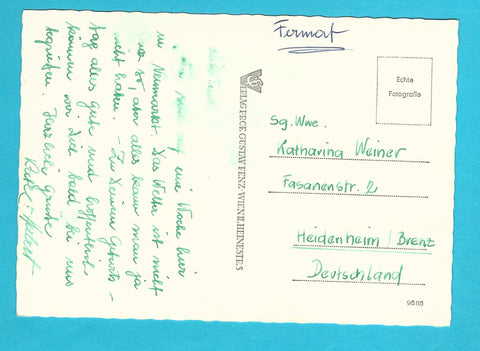 Format
Echte
Fotografie
Sg. Wwe.
Katharina Weiner
Fasanenstr. 2
Heidenheim / Brenz
Deutschland
95115
VERLAG FRCK. GUSTAV FENZ-WIEN II. HEINESTR. 8
wir sind auf eine Woche hier
in Neumarkt. Das Wetter ist nicht
so, aber alles kann man ja
nicht haben. - Zu Deinem Geburts-
tag alles gute und hoffentlich
können wir Dich bald bei uns
begrüßen. Herzliche Grüße